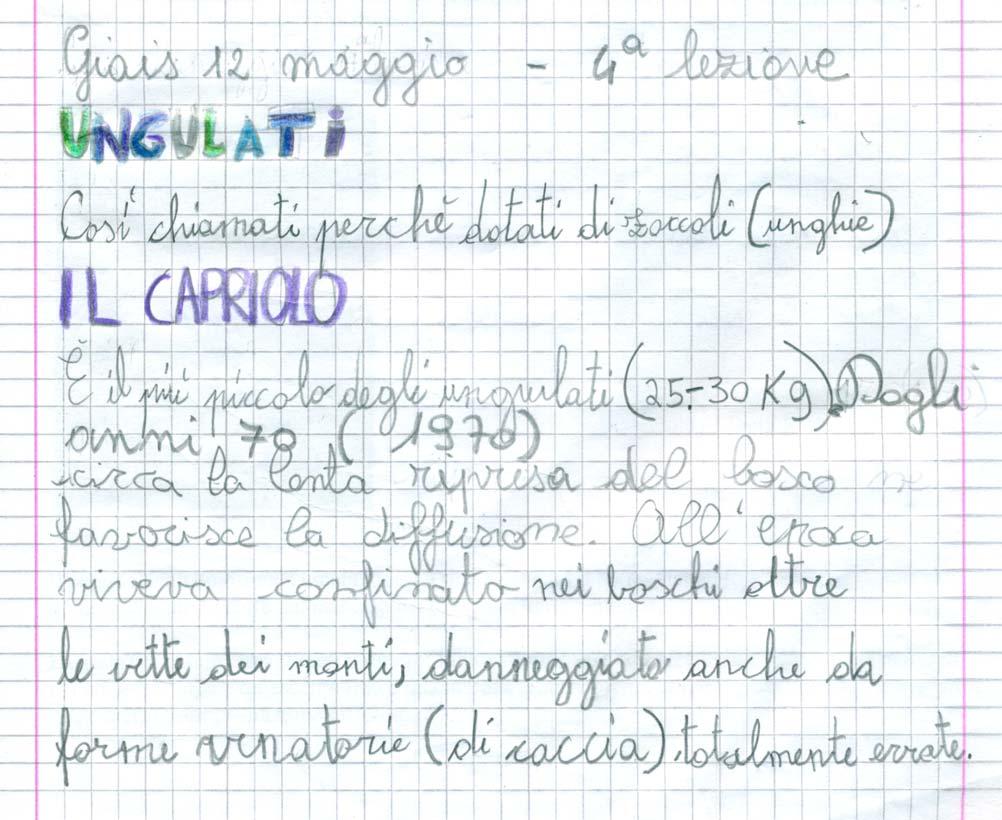 Giais 12 maggio - 4ª lezione
UNGULATI
Così chiamati perchè dotati di zoccoli (unghie)
IL CAPRIOLO
È il più piccolo degli ungulati (25-30 Kg). Dagli
anni 70 (1970)
circa la lenta ripresa del bosco ne
favorisce la diffusione. All'epoca
viveva confinato nei boschi oltre
le vette dei monti, danneggiato anche da
forme venatorie (di caccia) totalmente errate.